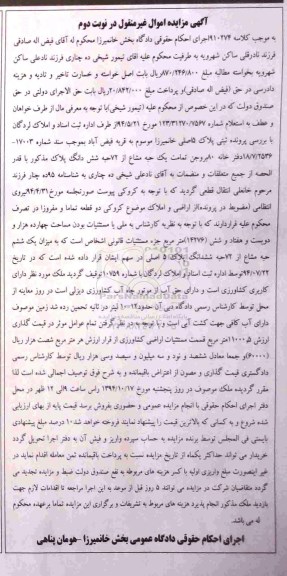 آگهی مزایده اموال غیرمنقول در نوبت دوم
به موجب کلاسه ۹۱۰۲۷۴ اجرای احکام حقوقی دادگاه بخش خانمیرزا محکوم له آقای فیض اله صادقی
فرزند نادرقلی ساکن شهرویه به طرفیت محکوم علیه اقای تیمور شیخی ده چناری فرزند نادعلی ساکن
شهرویه بخواسته مطالبه مبلغ ۸۷۰/۲۴۶/۸۰۰ ریال بابت اصل خواسته و خسارت تاخیر و تادیه و هزینه
دادرسی در حق (فیض اله صادقی)و پرداخت مبلغ ۲۰/۸۴۲/۰۰۰ ریال بابت حق الاجرای دولتی در حق
صندوق دولت که در این خصوص از محکوم علیه (تیمور شیخی)با توجه به معرفی مال از طرف خواهان
و عطف به استعلام شماره ۱۲۳/۳۱۲۷۰/۷۵۶۷ مورخ ۹۴/۵/۲۱ از طرف اداره ثبت اسناد و املاک لردگان
با بررسی پرونده ثبتی پلاک ۵اصلی خانمیرزا موسوم به قریه فیض آباد بموجب سند شماره ۱۷۰۰۳-
۱۸/۷/۲۵۳۶ دفتر خانه ۱۰بروجن تمامت یک حبه مشاع از ۷۲حبه شش دانگ پلاک مذکور با قدر
الحصه از جمیع متعلقات و منضمات به آقای نادعلی شیخی ده چناری به شناسنامه ۹۵ده چنار فرزند
مرحوم خانعلی انتقال قطعی گردید که با توجه به کروکی پیوست صورتجلسه مورخ ۹۴/۴/۳۱نیروی
انتظامی (مضبوط در پرونده)از اراضی و املاک موضوع کروکی دو قطعه تماما و مفروزا در تصرف
محکوم علیه قراردارند که با توجه به نظریه کارشناس به ملی یا مستثنیات بودن مساحت چهارده هزار و
دویست و هفتاد و شش (۱۴۲۷۶)متر مربع جزء مستثنیات قانونی اشخاص است که به میزان یک ششم
حبه مشاع از ۷۲حبه ششدانگ پلاک ۵ اصلی در سهم ایشان قرار داده شده است که در تاریخ
۹۴/۰۷/۲۲توسط اداره ثبت اسناد و املاک لردگان با شماره ۱۰۷۵۹ توقیف گردید ملک مورد نظر دارای
کاربری کشاورزی است و دارای حق آب از موتور چاه آب کشاورزی دیزلی است در روز معاینه از
محل توسط کارشناس رسمی دادگاه دبی آن حدود۱۲-۱۰ لیتر در ثانیه تخمین زده شد زمین موصوف
دارای آب کافی جهت کشت آبی است و با توجه به در نظر گرفتن تمام عوامل موثر در قیمت گذاری
ارزش ۱۰۰۰۵ متر مربع قسمت مستثنیات اراضی کشاورزی از قرار ارزش هر متر مربع شصت هزار ریال
(۶۰۰۰۰)و جمعا معادل ششصد و نود و سه میلیون و سیصد وسی هزار ریال توسط کارشناس رسمی
دادگستری قیمت گذاری و مصون از اعتراض باقیمانده و به شرح فوق توصیف اجمالی شده است لذا
مقرر گردیده ملک موصوف در روز پنجشنبه مورخ ۱۳۹۴/۱۰/۱۷ راس ساعت ۹الی ۱۲ ظهر در محل
دفتر اجرای احکام حقوقی با انجام مزایده عمومی و حضوری بفروش برسد قیمت پایه از بهای ارزیابی
شده شروع و به کسانی که بالاترین قیمت را پیشنهاد نمایند فروخته خواهد شد ۱۰ درصد مبلغ پیشنهادی
بایستی فی المجلس توسط برنده مزایده به حساب سپرده واریز و فیش آن به دفتر اجرا تحویل گردد
خریدار می تواند حداکثر یکماه از تاریخ مزایده نسبت به پرداخت باقیمانده ثمن معامله اقدام نماید در
غیر اینصورت مبلغ واریزی اولیه با کسر هزینه های مربوطه به نفع صندوق دولت ضبط و مزایده تجدید می
گردد متقاضیان شرکت در مزایده می توانند ۵ روز قبل از موعد به این اجرا مراجعه تا اقدامات لازم جهت
بازدید ملک مذکور انجام پذیرد هزینه های مربوط به تشریفات و برگزاری این مزایده تماما برعهده محکوم
له می باشد.
اجرای احکام حقوقی دادگاه عمومی بخش خانمیرزا –هومان پناهی